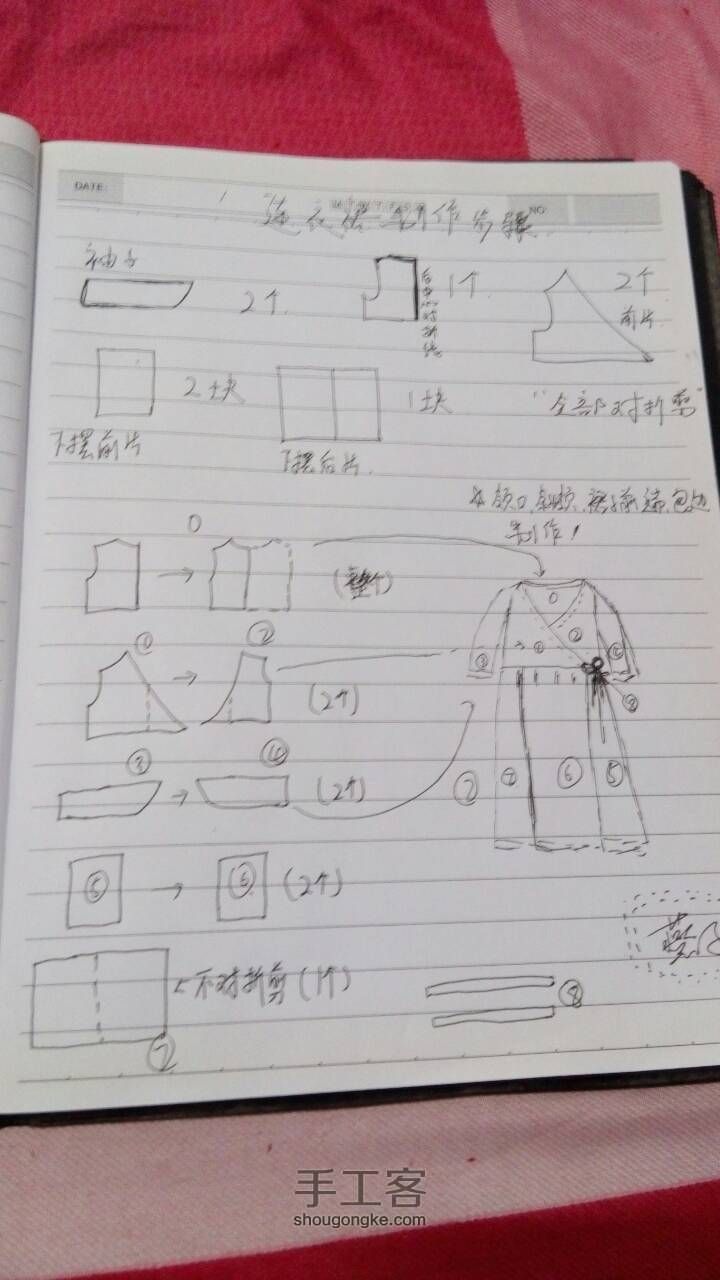 DATE:
NO
连衣裙制作步骤
袖子
2个
后中心对折线
1个
2个
前片
2块
1块
"全部对折剪"
下摆前片
下摆后片
领口、
包边
制作!
0
(整个)
① ②
(2个)
③ ④
(2个)
⑤ ⑥ (2个)
不对折剪(1个)
⑦
⑧
0
①
②
③
④
⑧
⑦
⑥
⑤
手工客
shougongke.com